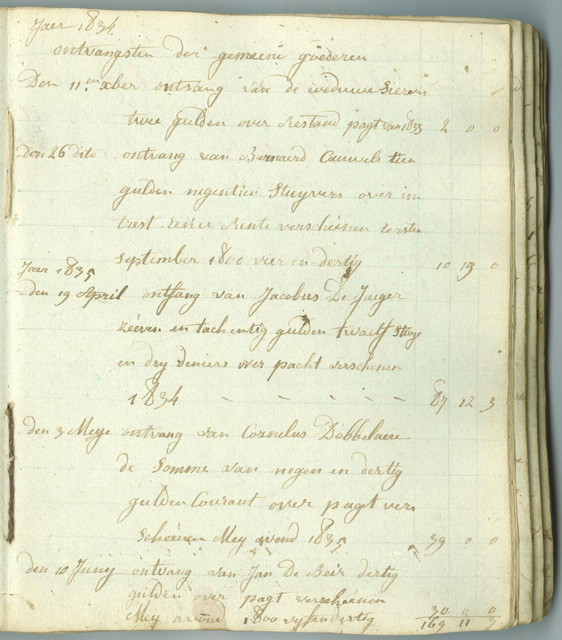 Jaer 1834
ontvangsten der gemeene goederen
Den 11en xber ontvang van de weduwe Sierens
twee gulden over Restand pagt van 1833 2 0 0
den 26 dito ontvang van Bernaerd Cauwels tien
gulden negentien Stuyvers over in
trest eener Rente verschenen eersten
September 1800 vier en dertig 10 19 0
Jaer 1835
den 19 April ontfang van Jacobus De Jaeger
zeeven en tachentig gulden twaelf Stuyv
en dry deniers over pacht verschenen
1834 - - - - - - 87 12 3
den 3 Meye ontvang van Cornelus Dobbelaere
de Somme van negen en dertig
gulden Courant over pagt vers
Scheenen Mey avond 1835 39 0 0
den 10 Juny ontvang van Jan De Beir dertig
gulden over pagt verscheenen
Mey avond 1800 vyfendertig 30 0 0
169 11